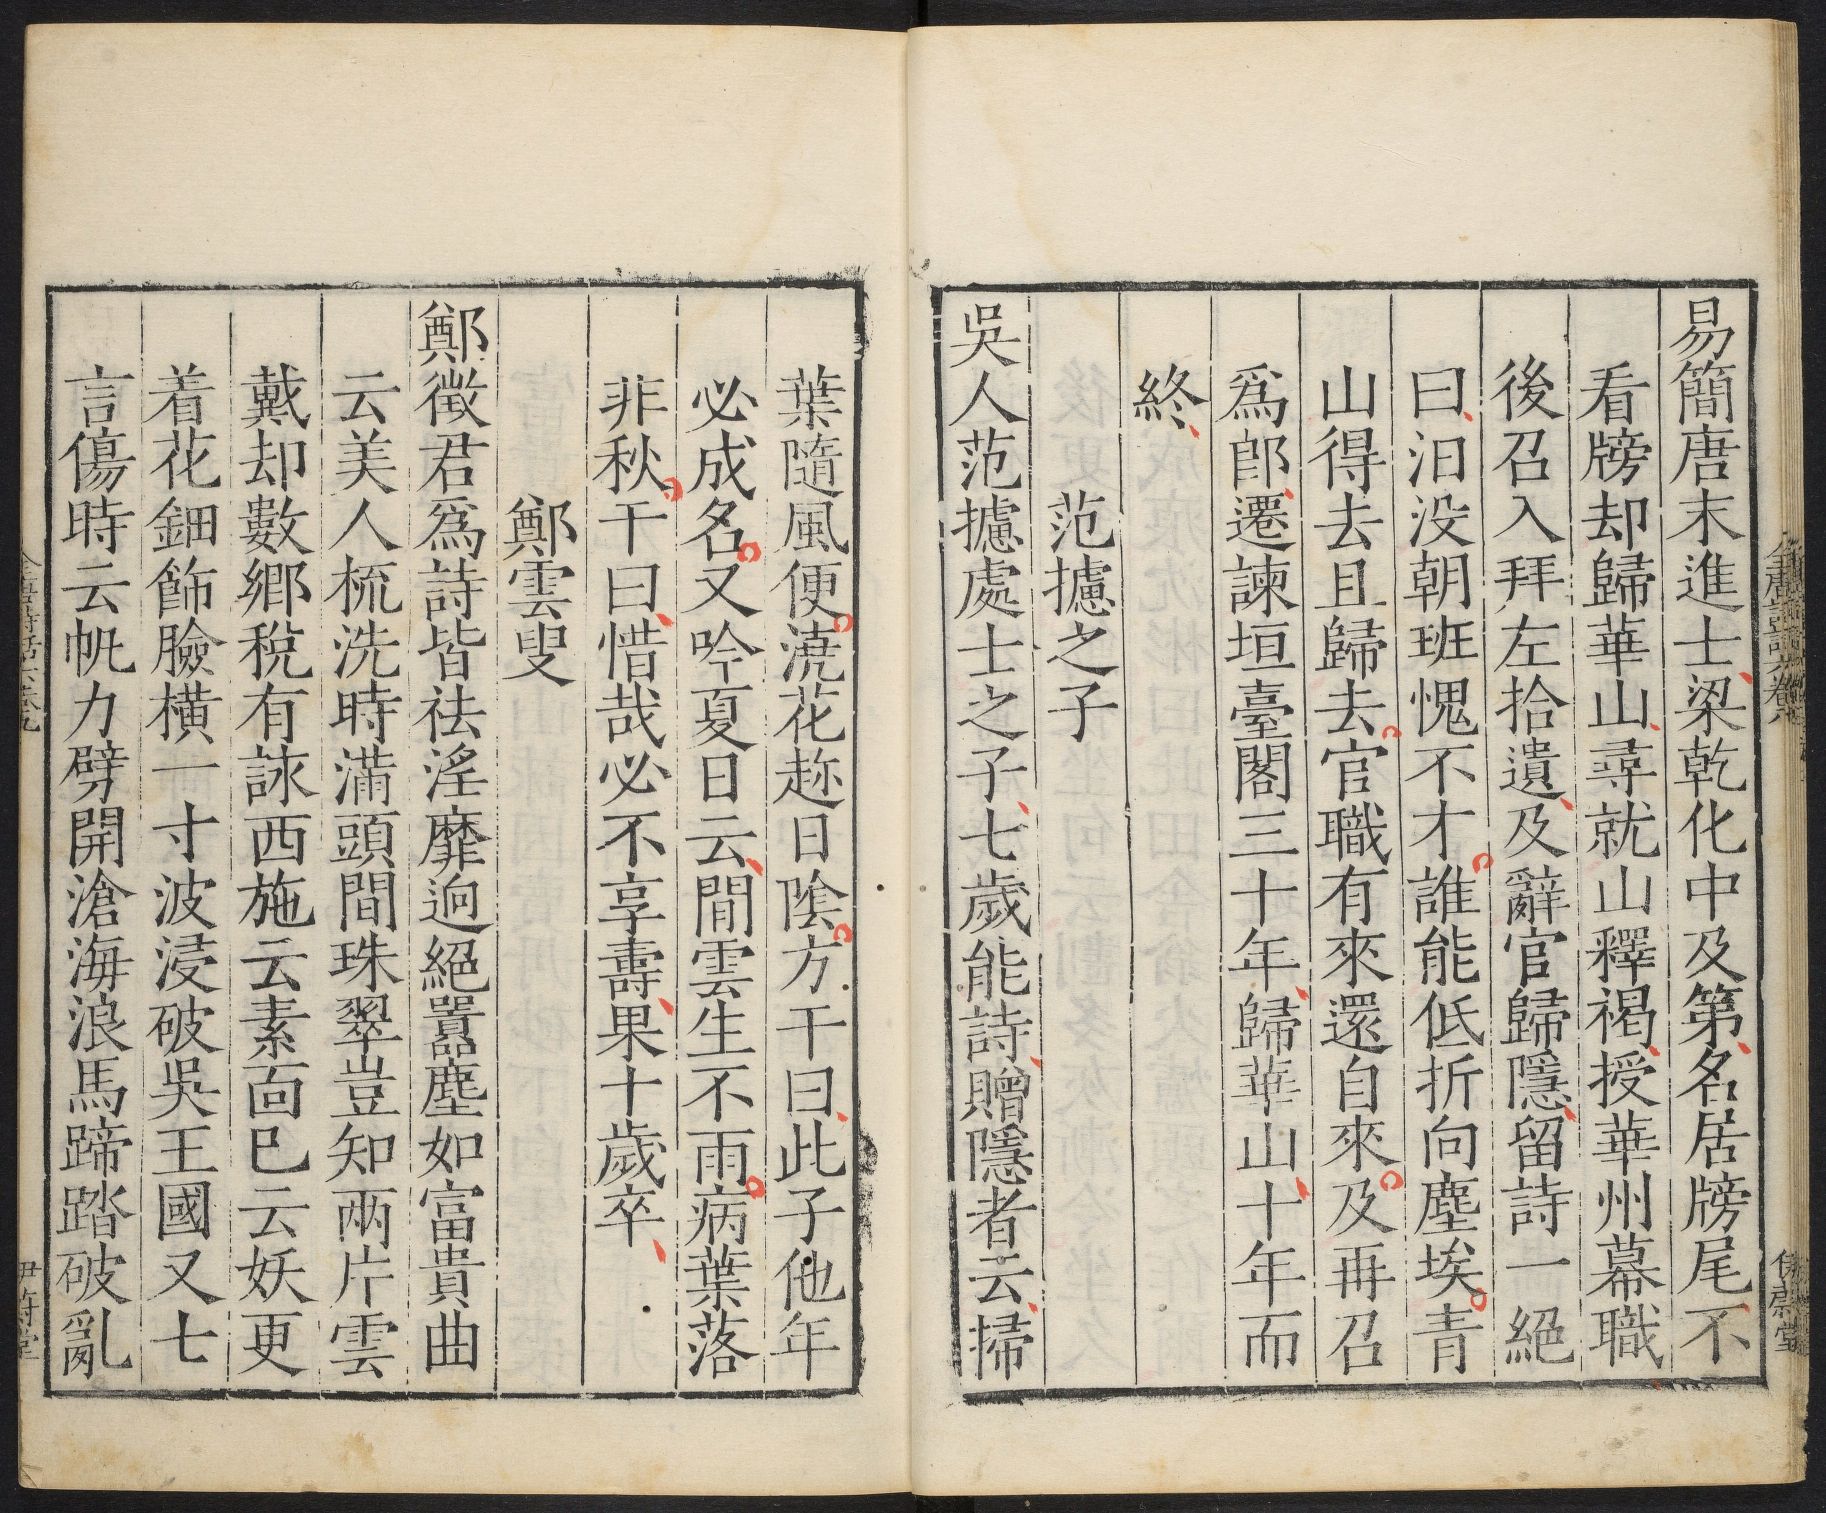 易簡唐末進士梁乾化中及第名居牓尾不
看牓却歸華山尋就山釋褐授華州幕職
後召入拜左拾遺及辭官歸隱留詩一絕
曰汩没朝班愧不才誰能低折向塵埃青
山得去且歸去官職有來還自來及再召
爲郎遷諫垣臺閣三十年歸華山十年而
終
范攄之子
吳人范攄處士之子七歲能詩贈隱者云掃
葉隨風便澆花趂日陰方干曰此子他年
必成名又吟夏日云閒雲生不雨病葉落
非秋干曰惜哉必不享壽果十歲卒
鄭雲叟
鄭徵君爲詩皆祛淫靡迥絕囂塵如富貴曲
云美人梳洗時滿頭間珠翠豈知兩片雲
戴却數鄉稅有詠西施云素面已云妖更
着花鈿飾臉橫一寸波浸破吳王國又七
言傷時云帆力劈開滄海浪馬蹄踏破亂